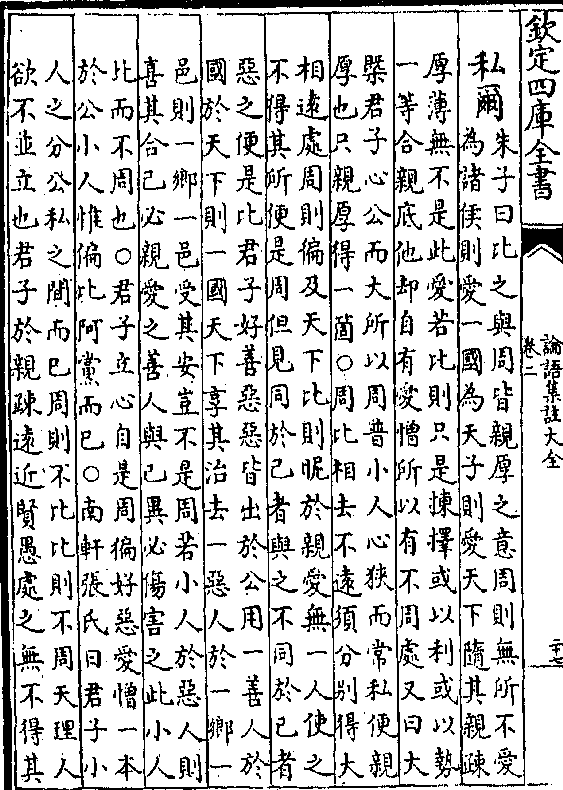 欽定四庫全書
論語集註大全
卷二
二十七
私爾
朱子曰比之與周皆親厚之意周則無所不愛
為諸侯則愛一國為天子則愛天下隨其親疎
厚薄無不是此愛若比則只是揀擇或以利或以勢
一等合親底他却自有愛憎所以有不周處又曰大
槩君子心公而大所以周普小人心狹而常私便親
厚也只親厚得一箇○周比相去不遠須分别得大
相遠處周則徧及天下比則昵於親愛無一人使之
不得其所便是周但見同於己者與之不同於己者
惡之便是比君子好善惡惡皆出於公用一善人於
國於天下則一國天下享其治去一惡人於一鄉一
邑則一鄉一邑受其安豈不是周若小人於惡人則
喜其合己必親愛之善人與己異必傷害之此小人
比而不周也○君子立心自是周徧好惡愛憎一本
於公小人惟偏比阿黨而已○南軒張氏曰君子小
人之分公私之間而已周則不比比則不周天理人
欲不並立也君子於親疎遠近賢愚處之無不得其